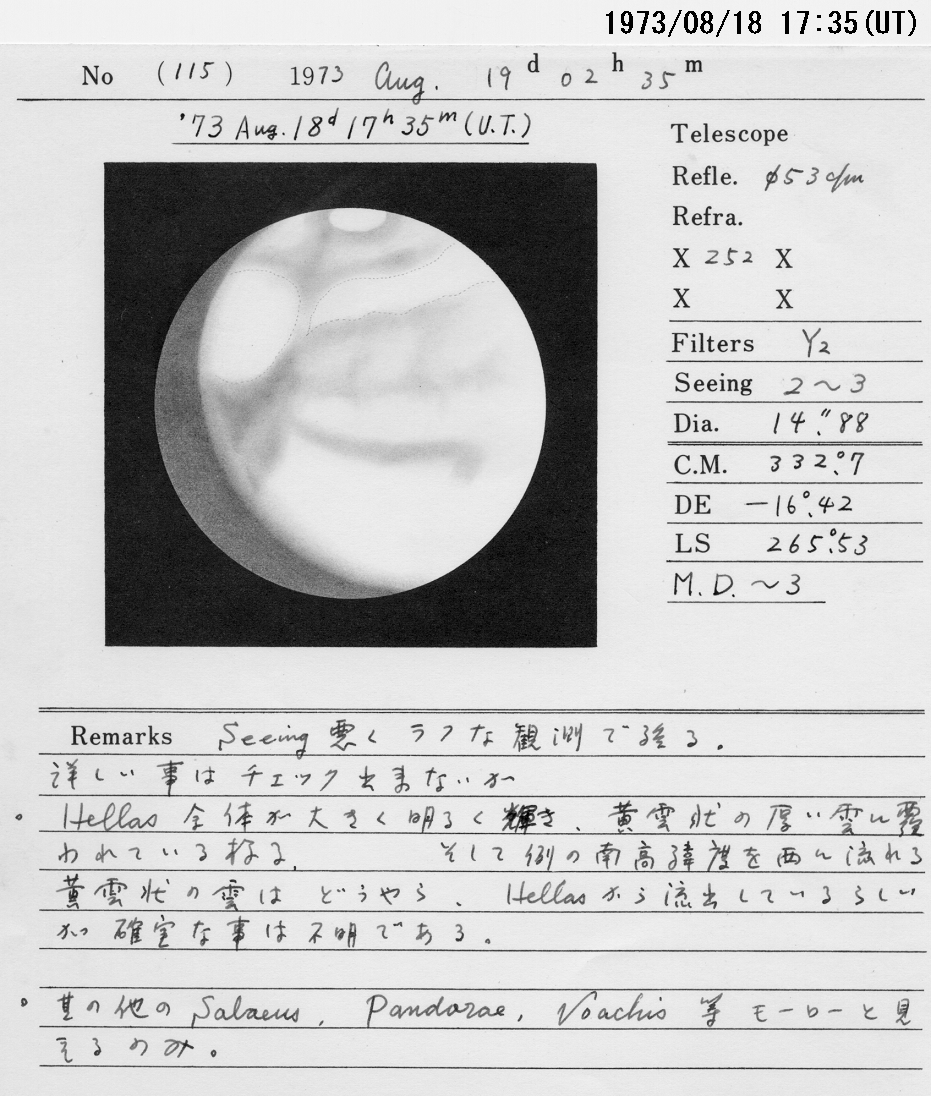 1973/08/18 17:35(UT)
No (115) 1973 Aug. 19 d 02 h 35 m
'73 Aug. 18d 17h 35m (U.T.)
Telescope
Refle. φ53 c/m
Refra.
X 252 X
X X
Filters Y2
Seeing 2～3
Dia. 14."88
C.M. 332°.7
DE －16°.42
LS 265°.53
M.D. ～3
Remarks Seeing 悪く ラフな観測で終る.
詳しい事はチェック出来ないが
。Hellas 全体が大きく明るく輝き、黄雲状の厚い雲に覆
われている様る. そして例の南高緯度を西に流れる
黄雲状の雲は どうやら、Hellasから流出しているらしい
が 確実な事は不明である。
。其の他の Sabaeus, Pandorae, Noachis 等 モーローと見
えるのみ。